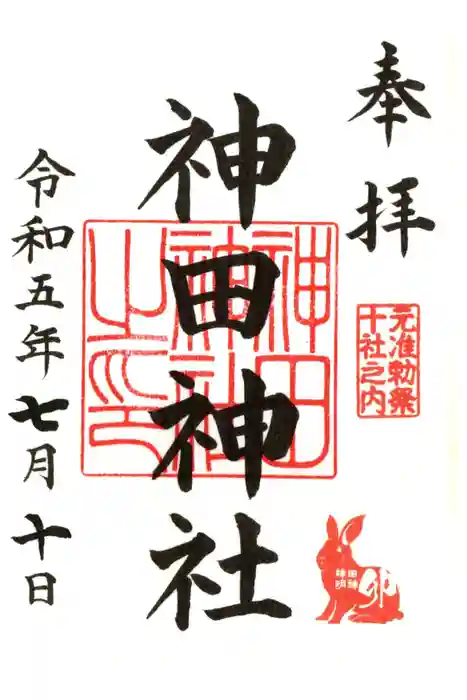 奉拝
元准勅祭
十社之内
卯
神田神社
神田
神社
之印
令和五年七月十日